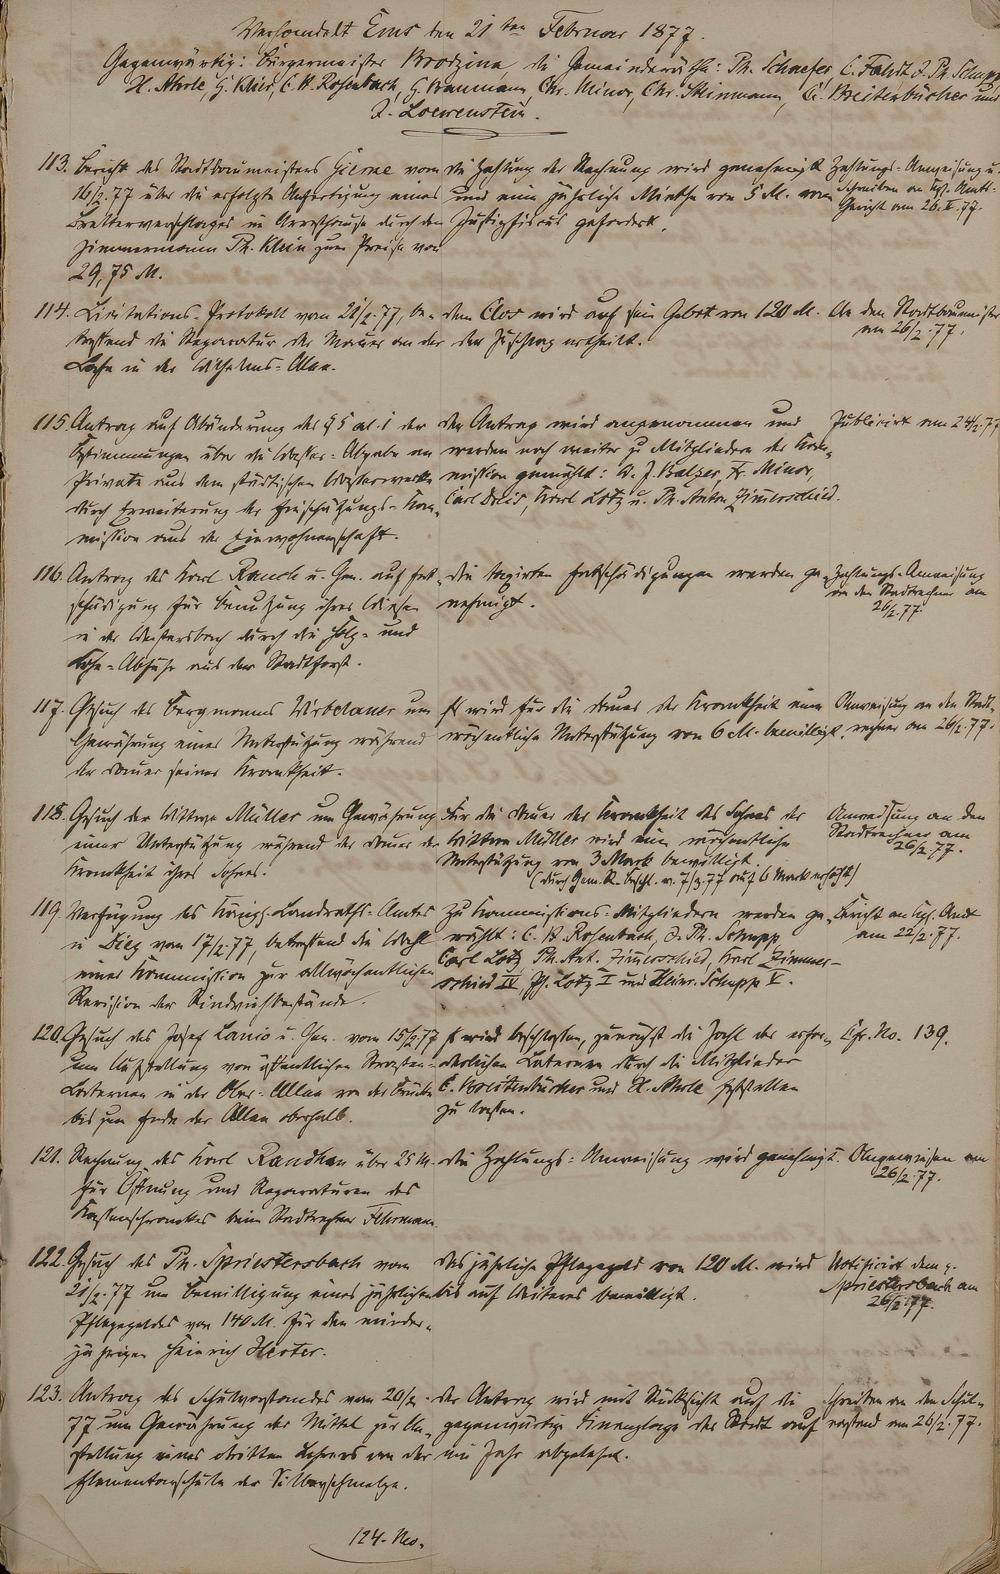 Verhandelt Ems den 21ten Februar 1877.
Gegenwärtig: Bürgermeister Brodzina, die Gemeinderäthe: Ph. Schaefer, C. Fahdt, J. Ph. Schupp
H. Ahrle, G. Klein, C. H. Rosenbach, G. Baumann, Chr. Minor, Chr. Steinmann, C. Breitenbücher und
J. Loewenstein.
113. Bericht des Stadtbaumeisters Gierne vom
16/2.77 über die erfolgte Anfertigung eines
Bretterverschlages im Arresthause durch den
Zimmermann Ph. Klein zum Preise von
29,75 M.
die Zahlung der Rechnung wird genehmigt
und eine jährliche Miethe von 5 M. vom
Justizfiscus gefordert.
Zahlungs-Anweisung u.
Schreiben an Kgl. Amts-
Gericht am 26.II.77.
114. Licitations-Protokoll vom 21/2.77, be-
treffend die Reparatur der Mauer an der
Lahn in der Wilhelms-Allee.
dem Clos wird auf sein Gebot von 120 M.
der Zuschlag ertheilt.
An den Stadtbaumeister
am 26/2.77.
115. Antrag auf Abänderung des § 5 al. 1 der
Bestimmungen über die Wasser-Abgabe an
Private aus dem städtischen Wasserwerke
durch Erweiterung der Einschätzungs-Kom-
mission aus der Einwohnerschaft.
der Antrag wird angenommen und
werden noch weiter zu Mitgliedern der Kom-
mission gewählt: A. J. Balzer, Fr. Minor,
Carl Deis, Karl Lotz u. Ph. Anton Zimerschied.
Publicirt am 24/2.77
116. Antrag des Karl Rauch u. Gen. auf Ent-
schädigung für Benutzung ihres Wiesen
in der Weistersbach durch die Holz- und
Lohe-Abfuhr aus dem Stadtforst.
die taxirten Entschädigungen werden ge-
nehmigt.
Zahlungs-Anweisung
an den Stadtrechner am
26/2.77.
117. Gesuch des Bergmanns Wirbelauer um
Gewährung einer Unterstützung während
der Dauer seiner Krankheit.
Es wird für die Dauer der Krankheit eine
wöchentliche Unterstützung von 6 M. bewilligt.
Anweisung an den Stadt-
rechner am 26/2.77.
118. Gesuch der Wittwe Müller um Gewährung
einer Unterstützung während der Dauer der
Krankheit ihres Sohnes.
Für die Dauer der Krankheit des Sohnes der
Wittwe Müller wird eine wöchentliche
Unterstützung von 3 Mark bewilligt.
(durch Gem.R.-Beschl. v. 7/3.77 auf 6 Mark erhöht)
Anweisung an den
Stadtrechner am
26/2.77.
119. Verfügung des Königl. Landraths-Amtes
in Diez vom 17/2.77, betreffend die Wahl
einer Kommission zur allwöchentlichen
Revision der Rindviehbestände.
Zu Kommissions-Mitgliedern werden ge-
wählt: C. H. Rosenbach, J. Ph. Schupp,
Carl Lotz, Ph. Ant. Zimerschied, Karl Zimmer-
schied IV, Ph. Lotz I und Heinr. Schupp V.
Bericht an Kgl. Amt
am 22/2.77.
120. Gesuch des Josef Lanio u. Gen. vom 15/2.77
um Aufstellung von öffentlichen Strassen-
Laternen in der Ober-Allee von der Brücke
bis zum Ende der Allee oberhalb.
Es wird beschlossen, zunächst die Zahl der erfor-
derlichen Laternen durch die Mitglieder
C. Breitenbücher und H. Ahrle feststellen
zu lassen.
Cfr. No. 139.
121. Rechnung des Karl Randhan über 25 M.
für Öffnung und Reparaturen des
Kassenschrankes beim Stadtrechner Fehrmann.
die Zahlungs-Anweisung wird genehmigt.
Angewiesen am
26/2.77.
122. Gesuch des Ph. Spriestersbach vom
21/2.77 um Bewilligung eines jährlichen
Pflegegeldes von 140 M. für den minder-
jährigen Heinrich Herter.
das jährliche Pflegegeld von 120 M. wird
bis auf Weiteres bewilligt.
Notificirt dem p.
Spriestersbach am
26/2.77.
123. Antrag des Schulvorstandes vom 20/2.
77 um Gewährung der Mittel zur An-
stellung eines dritten Lehrers an der
Elementarschule der Silberschmelze.
der Antrag wird mit Rücksicht auf die
gegenwärtige Finanzlage der Stadt auf
ein Jahr abgelehnt.
Schreiben an den Schul-
vorstand am 26/2.77.
124. No.